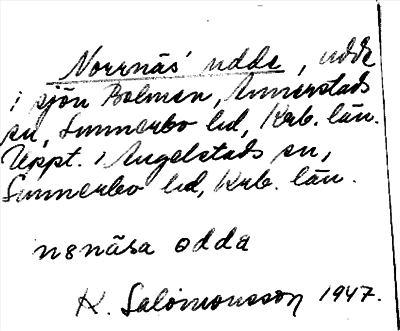 Norrnäs' udde, udde
i sjön Bolmen, Annerstads
sn, Sunnerbo hd, Krb. län.
Uppt. i Angelstads sn,
Sunnerbo hd, Krb. län.
nsnäsa odda
K. Salomonsson 1947.